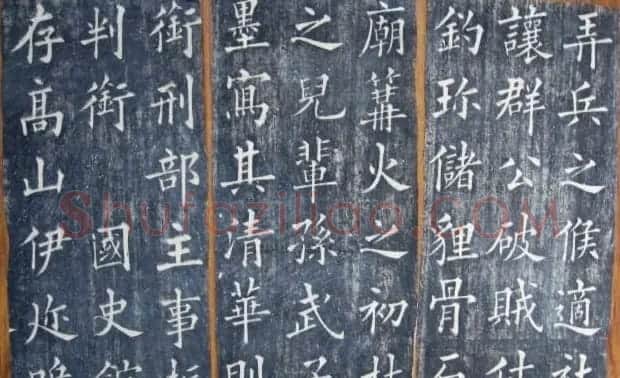 弄兵之候適社
讓群公破賊
釣珎儲貍骨
廟篝火之初
之兒輩孫武子
墨寫其清華則
銜刑部主事
判銜國史館
存高山伊迩
Shufaziliao.COM